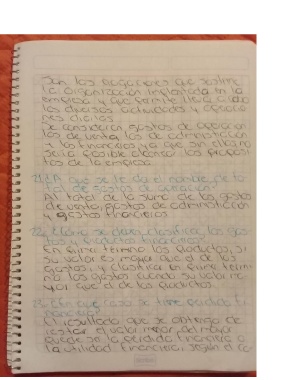 Son los erogaciones que realiza
la organización implantada en la
empresa y que permite llevar a cabo
los diversos actividades y operacio
nes diarias
Se consideran gastos de operación
los de venta, los de administración
y los financieros ya que sin ellos no
sería posible alcanzar los propósi
tos de la empresa
21. ¿A que se le da el nombre de to
tal de gastos de operación?
Al total de la suma de los gastos
de venta, gastos de administración
y gastos financieros
22. ¿Cómo se deben clasificar los gas
tos y productos financieros?
En primer termino los productos, si
su valor es mayor que el de los
gastos, y clasificar en primer termi
no los gastos cuando su valor ma
yor que el de los productos
23. ¿En que caso se tiene perdida fi
nanciera?
El resultado que se obtenga de
restar el valor menor, del mayor
puede ser la perdida financiera o
la utilidad financiera, según el ca